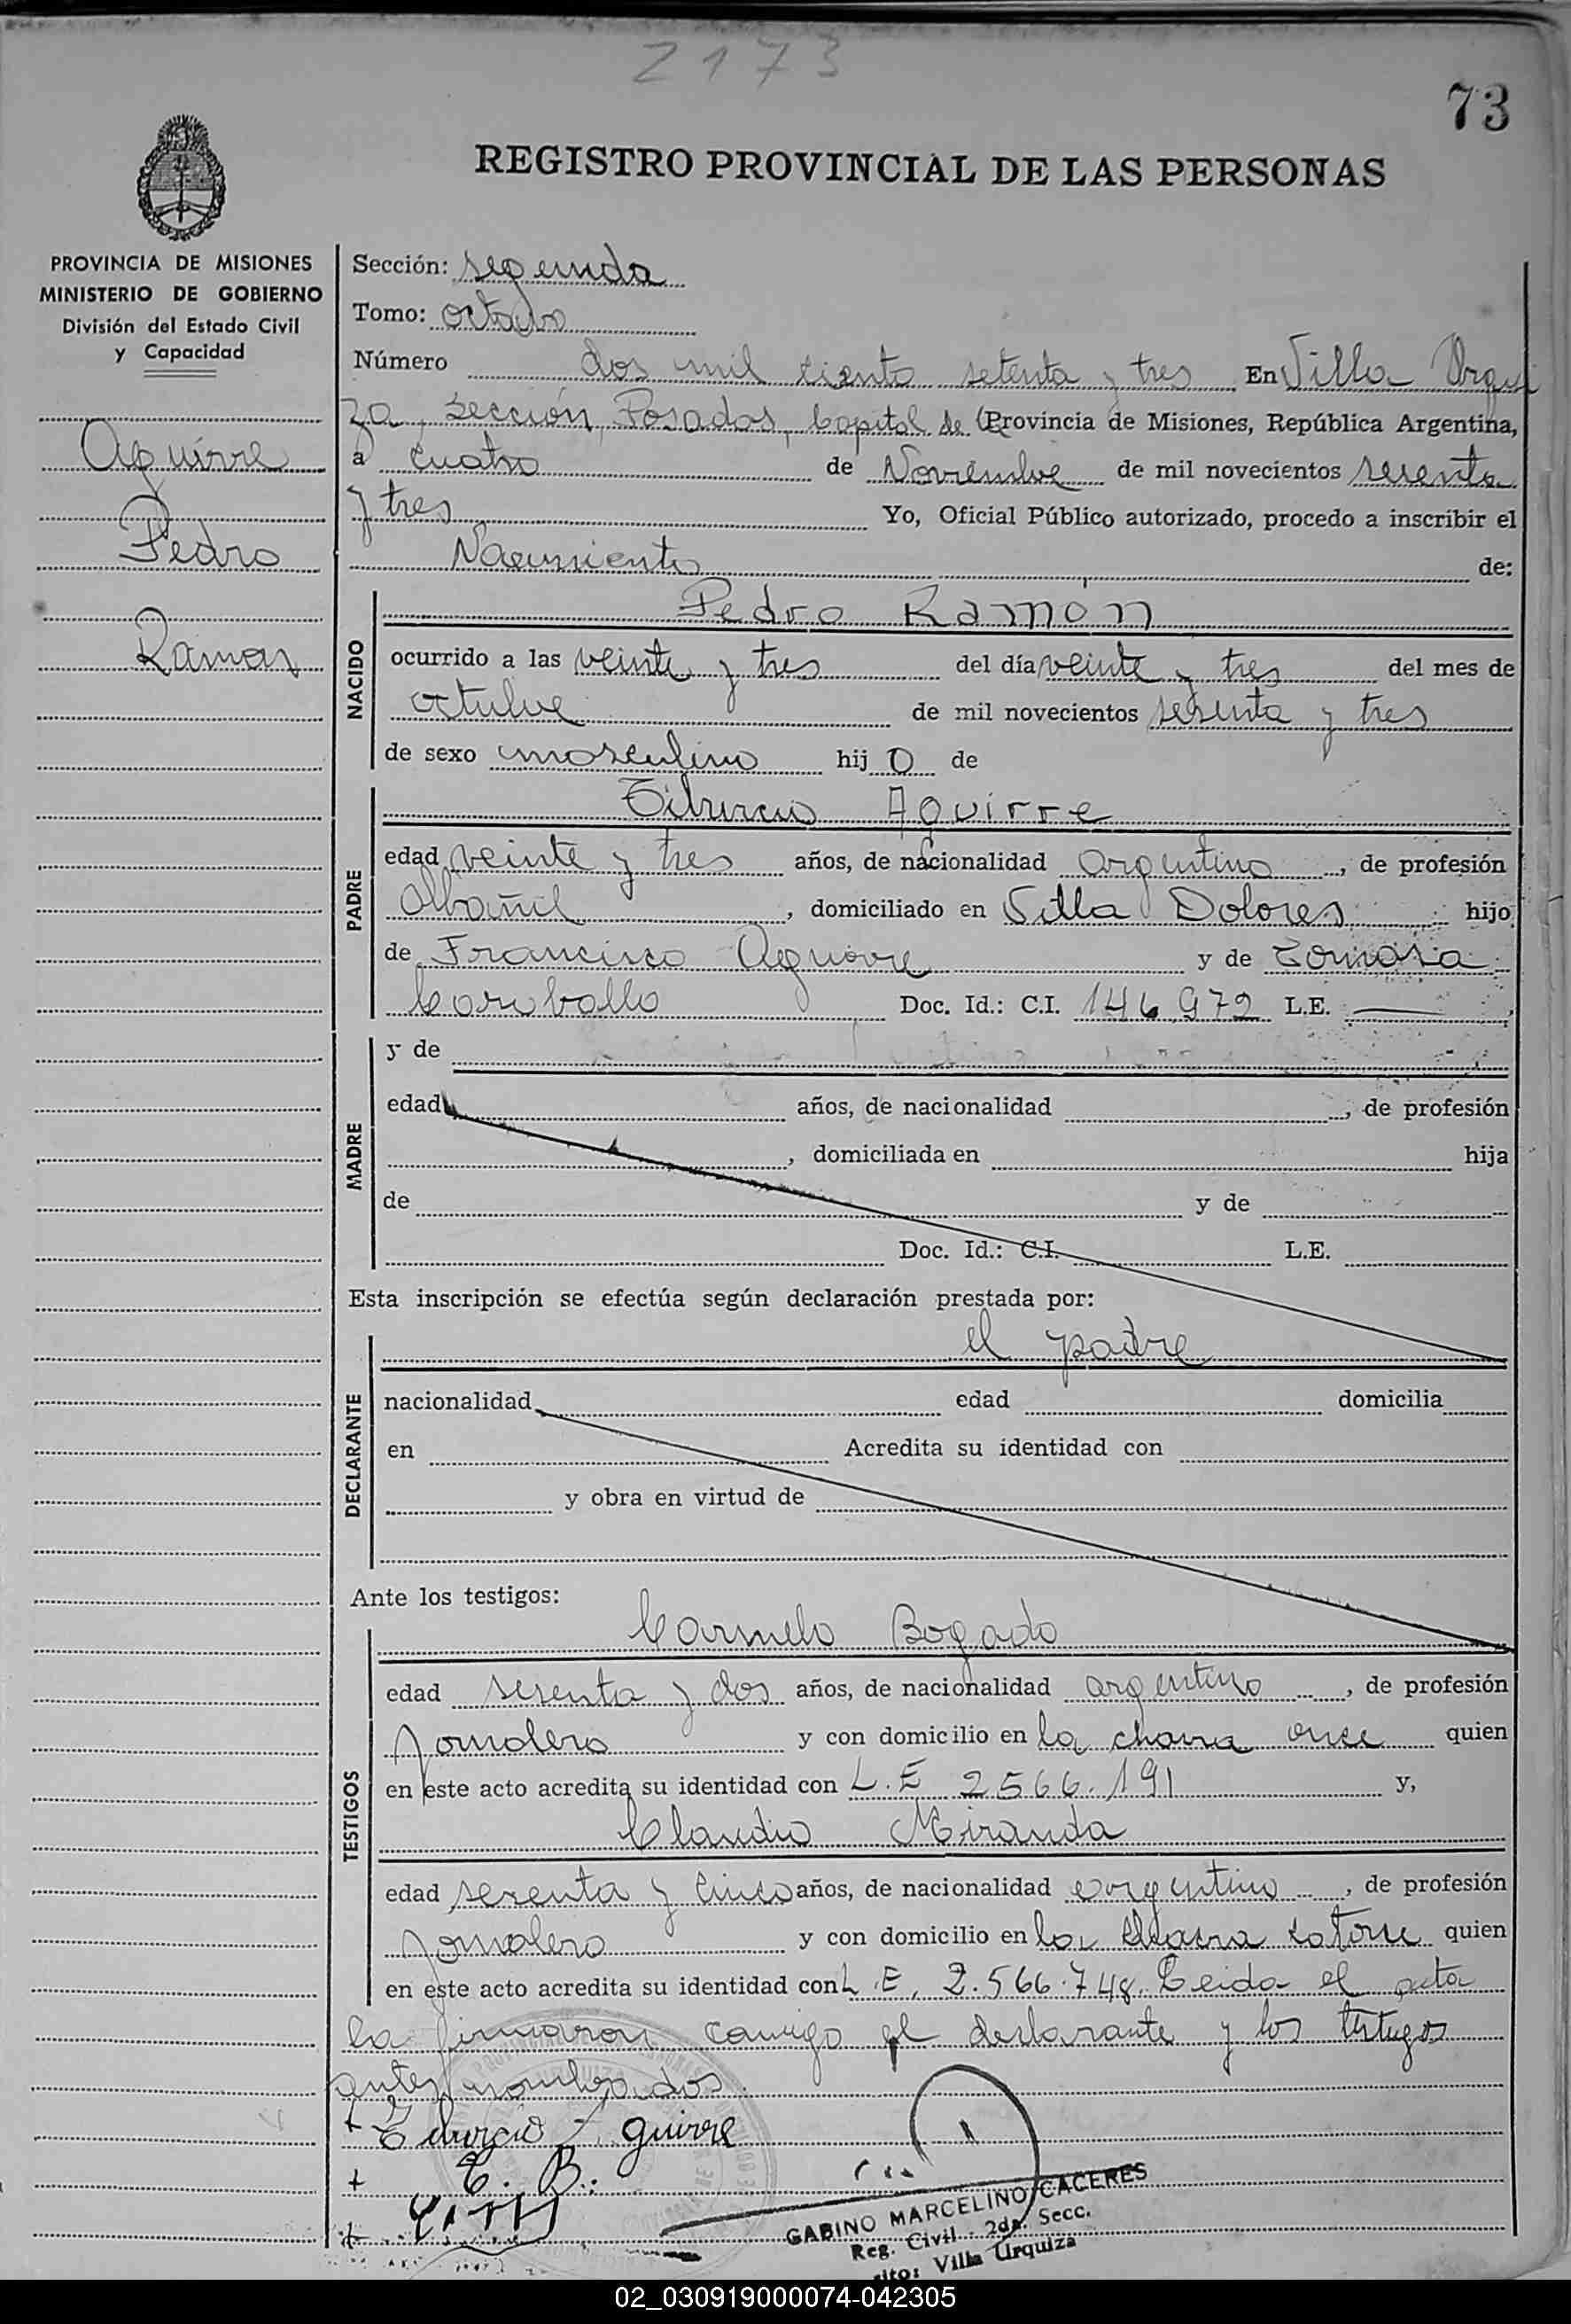 2173
73
REGISTRO PROVINCIAL DE LAS PERSONAS
PROVINCIA DE MISIONES
MINISTERIO DE GOBIERNO
División del Estado Civil
y Capacidad
Aguirre
Pedro
Ramon
Sección: segunda
Tomo: octavo
Número dos mil ciento setenta y tres En Villa Urqui
za, sección, Posadas, Capital de la Provincia de Misiones, República Argentina,
a cuatro de Noviembre de mil novecientos sesenta
y tres Yo, Oficial Público autorizado, procedo a inscribir el
Nacimiento de:
NACIDO
Pedro Ramón
ocurrido a las veinte y tres del día veinte y tres del mes de
octubre de mil novecientos sesenta y tres
de sexo masculino hijo de
PADRE
Tiburcio Aguirre
edad veinte y tres años, de nacionalidad argentino, de profesión
Albañil, domiciliado en Villa Dolores hijo
de Francisco Aguirre y de Tomasa
Caraballo Doc. Id.: C.I. 146.972 L.E. —
MADRE
y de
edad años, de nacionalidad , de profesión
, domiciliada en hija
de y de
Doc. Id.: C.I. L.E.
Esta inscripción se efectúa según declaración prestada por:
DECLARANTE
el padre
nacionalidad edad domicilia
en Acredita su identidad con
y obra en virtud de
Ante los testigos:
TESTIGOS
Carmelo Bogado
edad sesenta y dos años, de nacionalidad argentino, de profesión
Jornalero y con domicilio en la chacra once quien
en este acto acredita su identidad con L.E 2566.191 y,
Claudio Miranda
edad sesenta y cinco años, de nacionalidad argentino, de profesión
Jornalero y con domicilio en la chacra catorce quien
en este acto acredita su identidad con L.E. 2.566.748. Leida el acta
la firmaron conmigo el declarante y los testigos
antes nombrados.
+ Tiburcio Aguirre
+ C. B.
GABINO MARCELINO CACERES
Reg. Civil - 2da. Secc.
Villa Urquiza
02_030919000074-042305